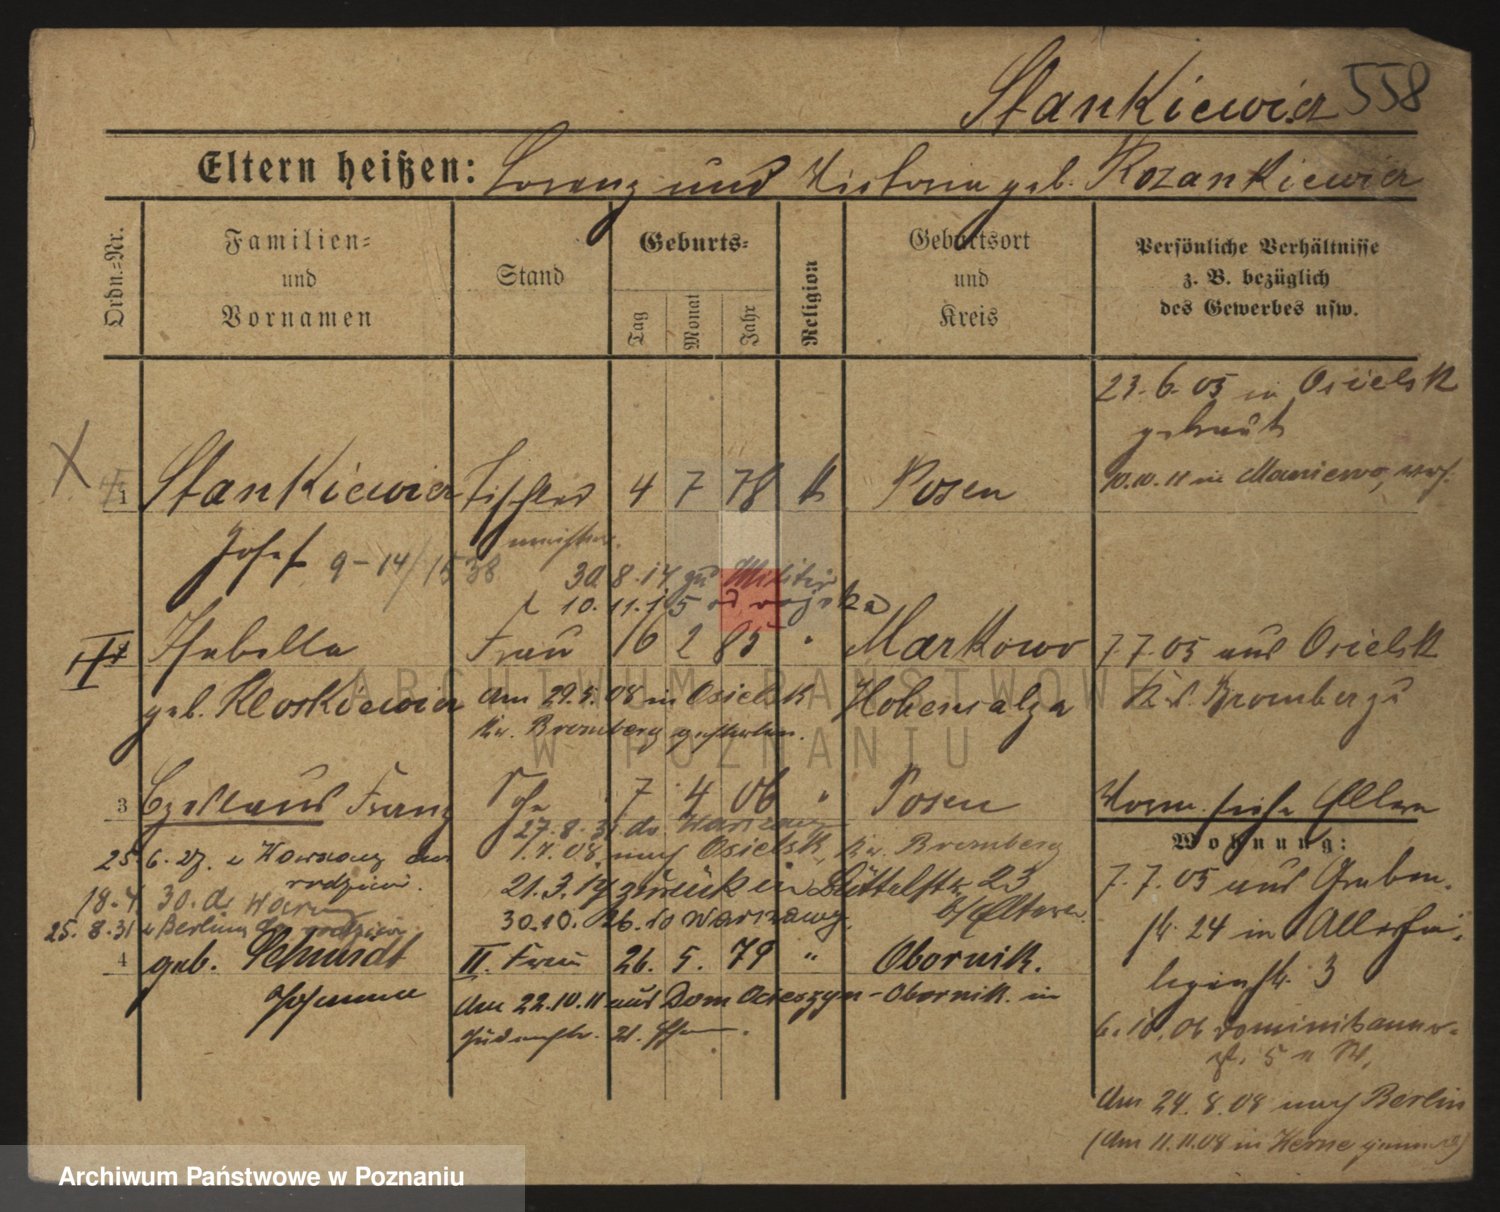 Stankiewicz 558
Eltern heißen: Lorenz und Viktoria geb. Rozankiewicz
Ordn.=Nr.
Familien=
und
Vornamen
Stand
Geburts=
Tag
Monat
Jahr
Religion
Geburtsort
und
Kreis
Persönliche Verhältnisse
z. B. bezüglich
des Gewerbes usw.
23.6.05 in Osielsk
getraut
1 Stankiewicz Tischler 4 7 78 k Posen
10.10.11 in Maniewo, verh.
Josef 9-14/1538 meister.
30.8.14 zu Militär
10.11.15 od wojska
Isabella Frau 16 2 85 " Markowo
7.7.05 aus Osielsk
geb. Kloskiewicz am 29.5.08 in Osielsk Hohensalza
Kr. Bromberg
Kr. Bromberg gestorben.
3 Czeslaus Franz Sohn 7 4 06 " Posen
Vorm. siehe Eltern
Wohnung:
27.8.31 do Warszawy
25.6.27. z Warszawy do
rodziców.
1.7.08 nach Osielsk, Kr. Bromberg
7.7.05 aus Graben-
18.4.30. do Warszawy
21.3.19 zurück in Büttelstr. 23
b/Eltern.
str. 24 in Allerhei-
25.8.31 z Berlina do rodziców
30.10.26. do Warszawy,
ligenstr. 3
4 geb. Schmidt II. Frau 26. 5. 79 " Obornik.
Johanna am 22.10.11 aus Dom Ocieszyn-Obornik. in
Judenstr. 21.
6.10.06 Dominikaner-
st. 5
Am 24.8.08 nach Berlin
(Am 11.11.08 in Herne
ARCHIWUM PAŃSTWOWE
W POZNANIU
Archiwum Państwowe w Poznaniu